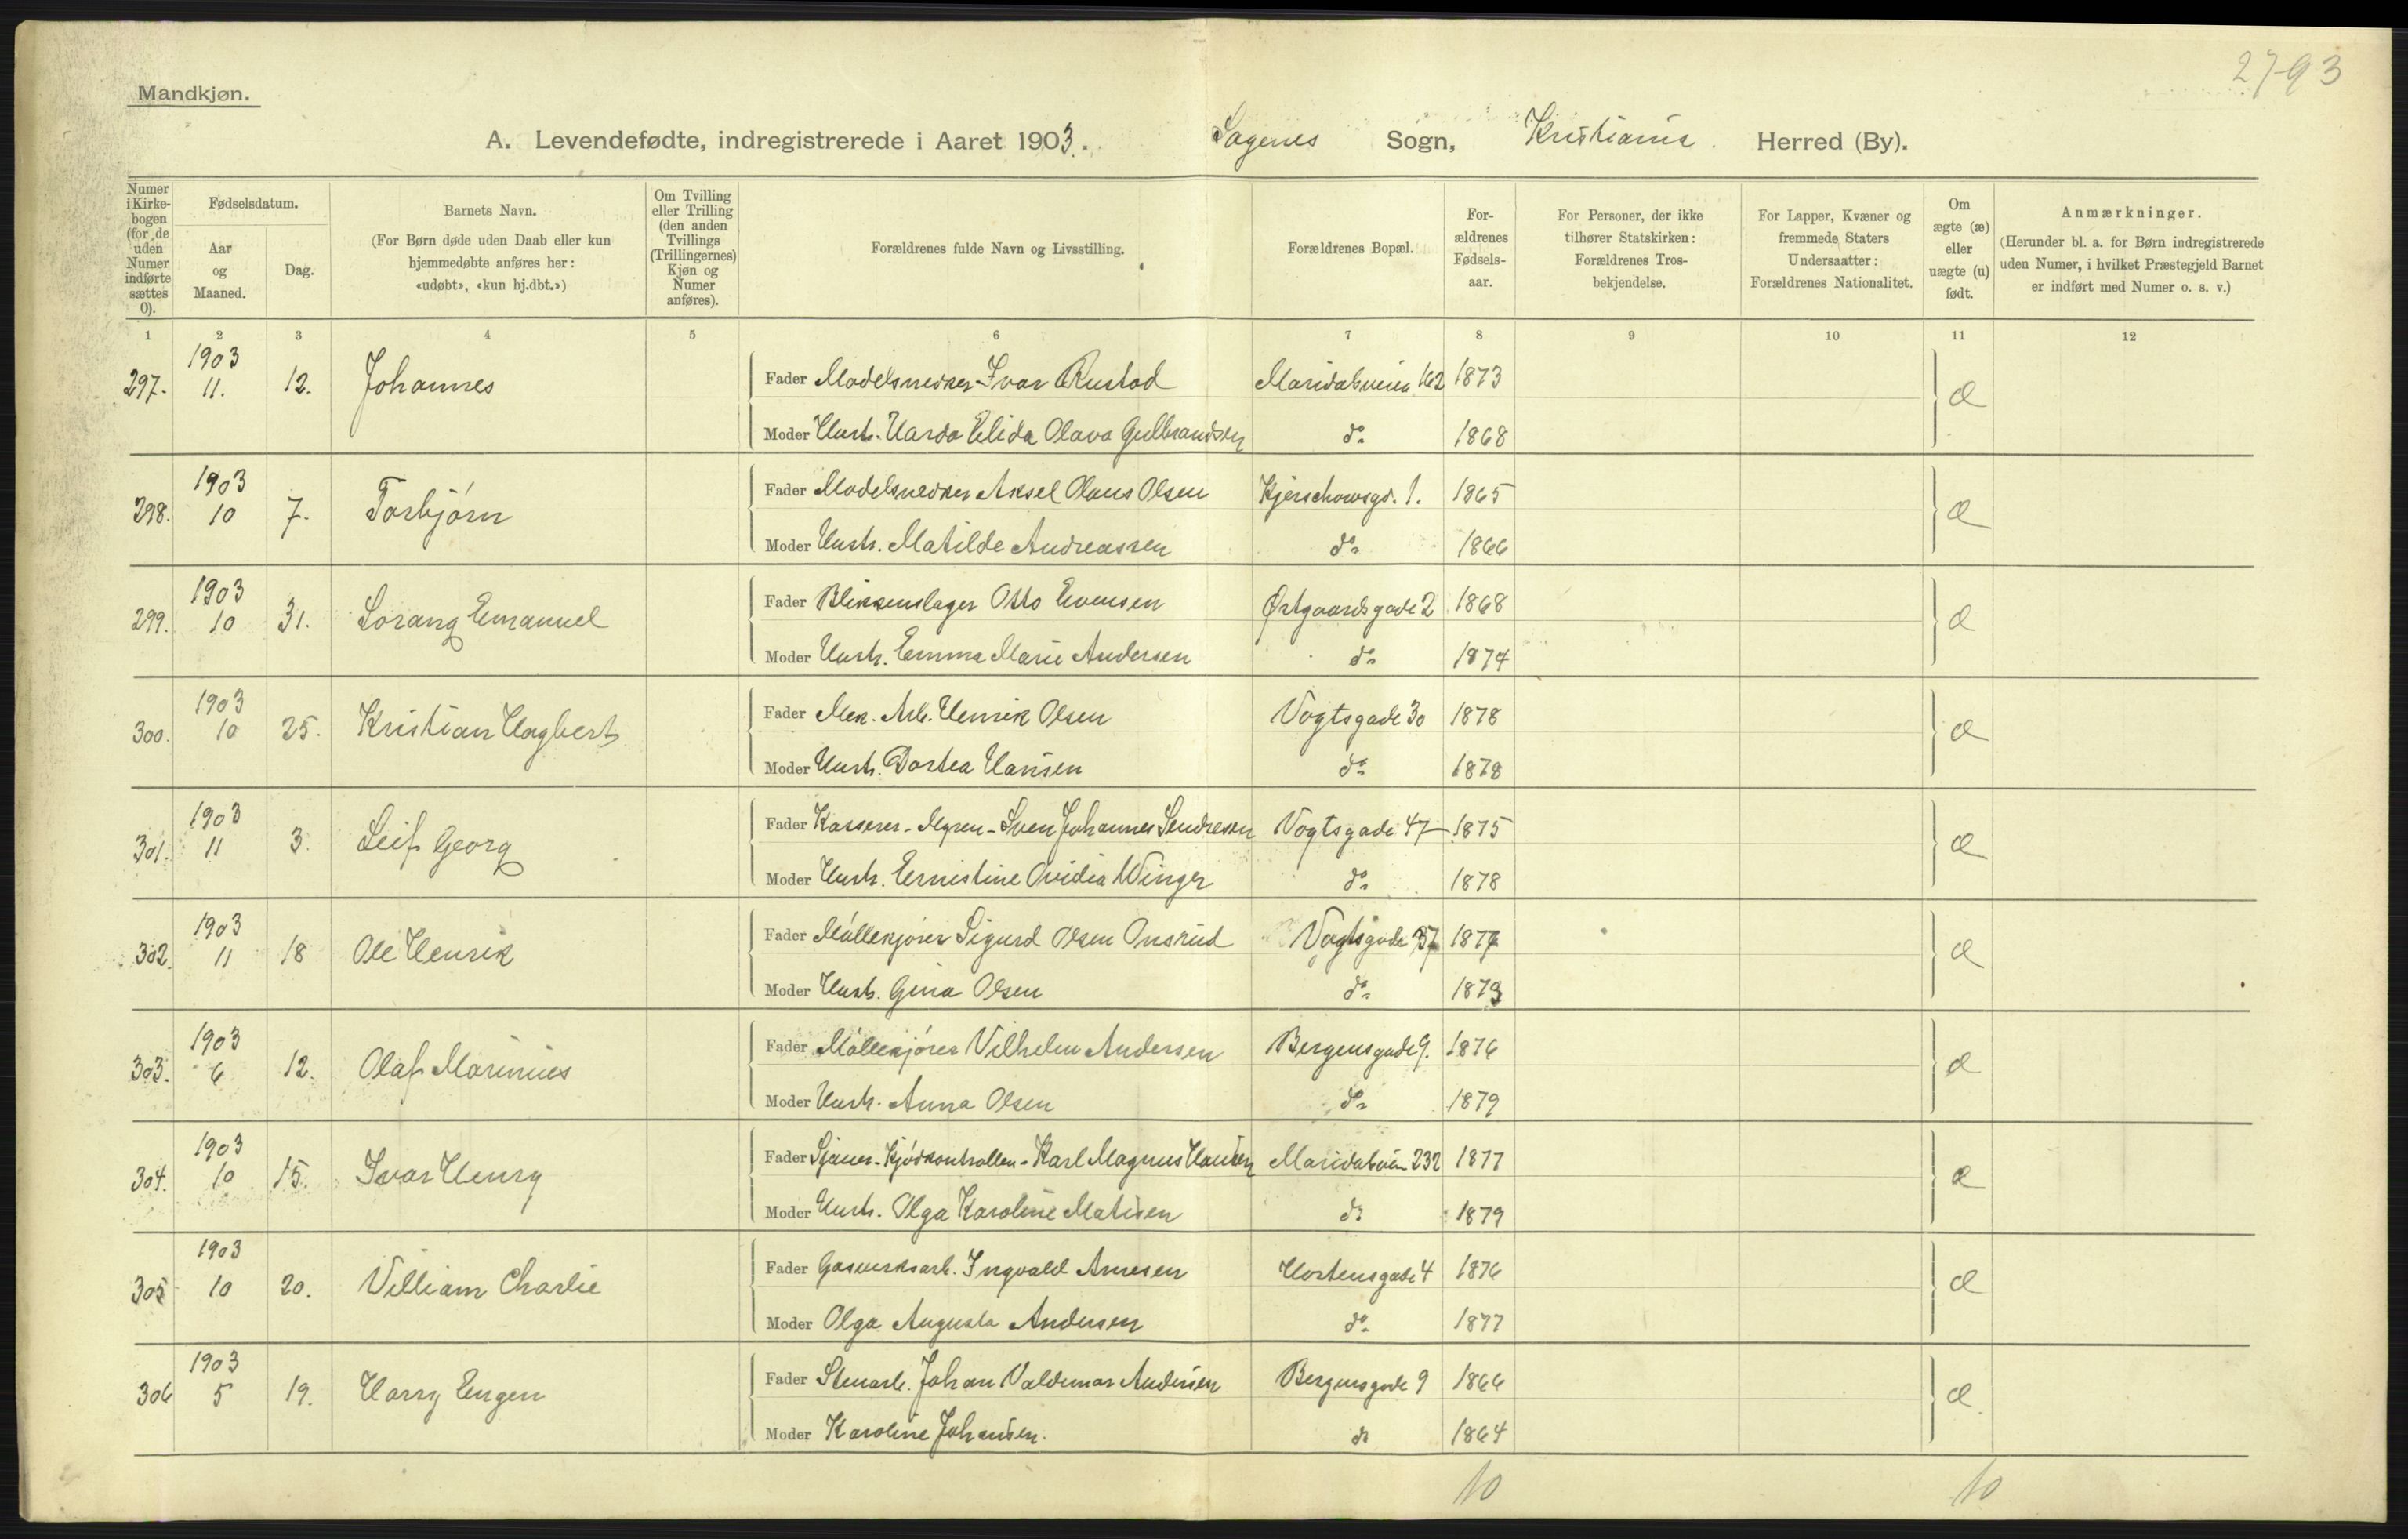 2793
Mandkjøn.
A. Levendefødte, indregistrerede i Aaret 1903. Sagenes Sogn, Kristiania. Herred (By).
Numer i Kirkebogen (for de uden Numer indførte sættes 0).
Fødselsdatum.
Aar og Maaned.
Dag.
Barnets Navn.
(For Børn døde uden Daab eller kun hjemmedøbte anføres her: «udøbt», «kun hj.dbt.»)
Om Tvilling eller Trilling (den anden Tvillings (Trillingernes) Kjøn og Numer anføres).
Forældrenes fulde Navn og Livsstilling.
Forældrenes Bopæl.
Forældrenes Fødselsaar.
For Personer, der ikke tilhører Statskirken: Forældrenes Trosbekjendelse.
For Lapper, Kvæner og fremmede Staters Undersaatter: Forældrenes Nationalitet.
Om ægte (æ) eller uægte (u) født.
Anmærkninger.
(Herunder bl. a. for Børn indregistrerede uden Numer, i hvilket Præstegjeld Barnet er indført med Numer o. s. v.)
1 2 3 4 5 6 7 8 9 10 11 12
297. 1903 11. 12. Johannes Fader Modelsnedker Ivar Rustad Maridalsveien 162 1873 æ
Moder Hustr. Harda Elida Olava Gulbrandsen do 1868
298. 1903 10 7. Torbjørn Fader Modelsnedker Aksel Olaus Olsen Kjerschowsgd. 1. 1865 æ
Moder Hustr. Matilde Andreassen do 1866
299. 1903 10 31. Lorang Emanuel Fader Blikkenslager Otto Evensen Østgaardsgade 2 1868 æ
Moder Hustr. Emma Marie Andersen do 1874
300. 1903 10 25. Kristian Hagbert Fader Mek. Arb. Henrik Olsen Vogtsgade 30 1878 æ
Moder Hustr. Dortea Hansen do 1878
301. 1903 11 3. Leif Georg Fader Kasserer - Myren - Sven Johannes Sendresen Vogtsgade 47 1875 æ
Moder Hustr. Ernestine Ovidia Winger do 1878
302. 1903 11 18 Ole Henrik Fader Møllekjører Sigurd Olsen Onsrud Vogtsgade 57 187 æ
Moder Hustr. Gina Olsen do 1873
303. 1903 6 12. Olaf Marinius Fader Møllekjører Vilhelm Andersen Bergensgade 9. 1876 æ
Moder Hustr. Anna Olsen do 1879
304. 1903 10 15. Ivar Henry Fader Sjauer - Kjødkontrollen - Karl Magnus Hansen Maridalsveien 232 1877 æ
Moder Hustr. Olga Karoline Matisen do 1879
305 1903 10 20. Villiam Charlie Fader Gasverksarb. Ingvald Arnesen Hortensgade 4 1876 æ
Moder Olga Augusta Andersen do 1877
306 1903 5 19. Harry Eugen Fader Stenarb. Johan Valdemar Andersen Bergensgade 9 1866 æ
Moder Karoline Johansen. do 1864
10 10